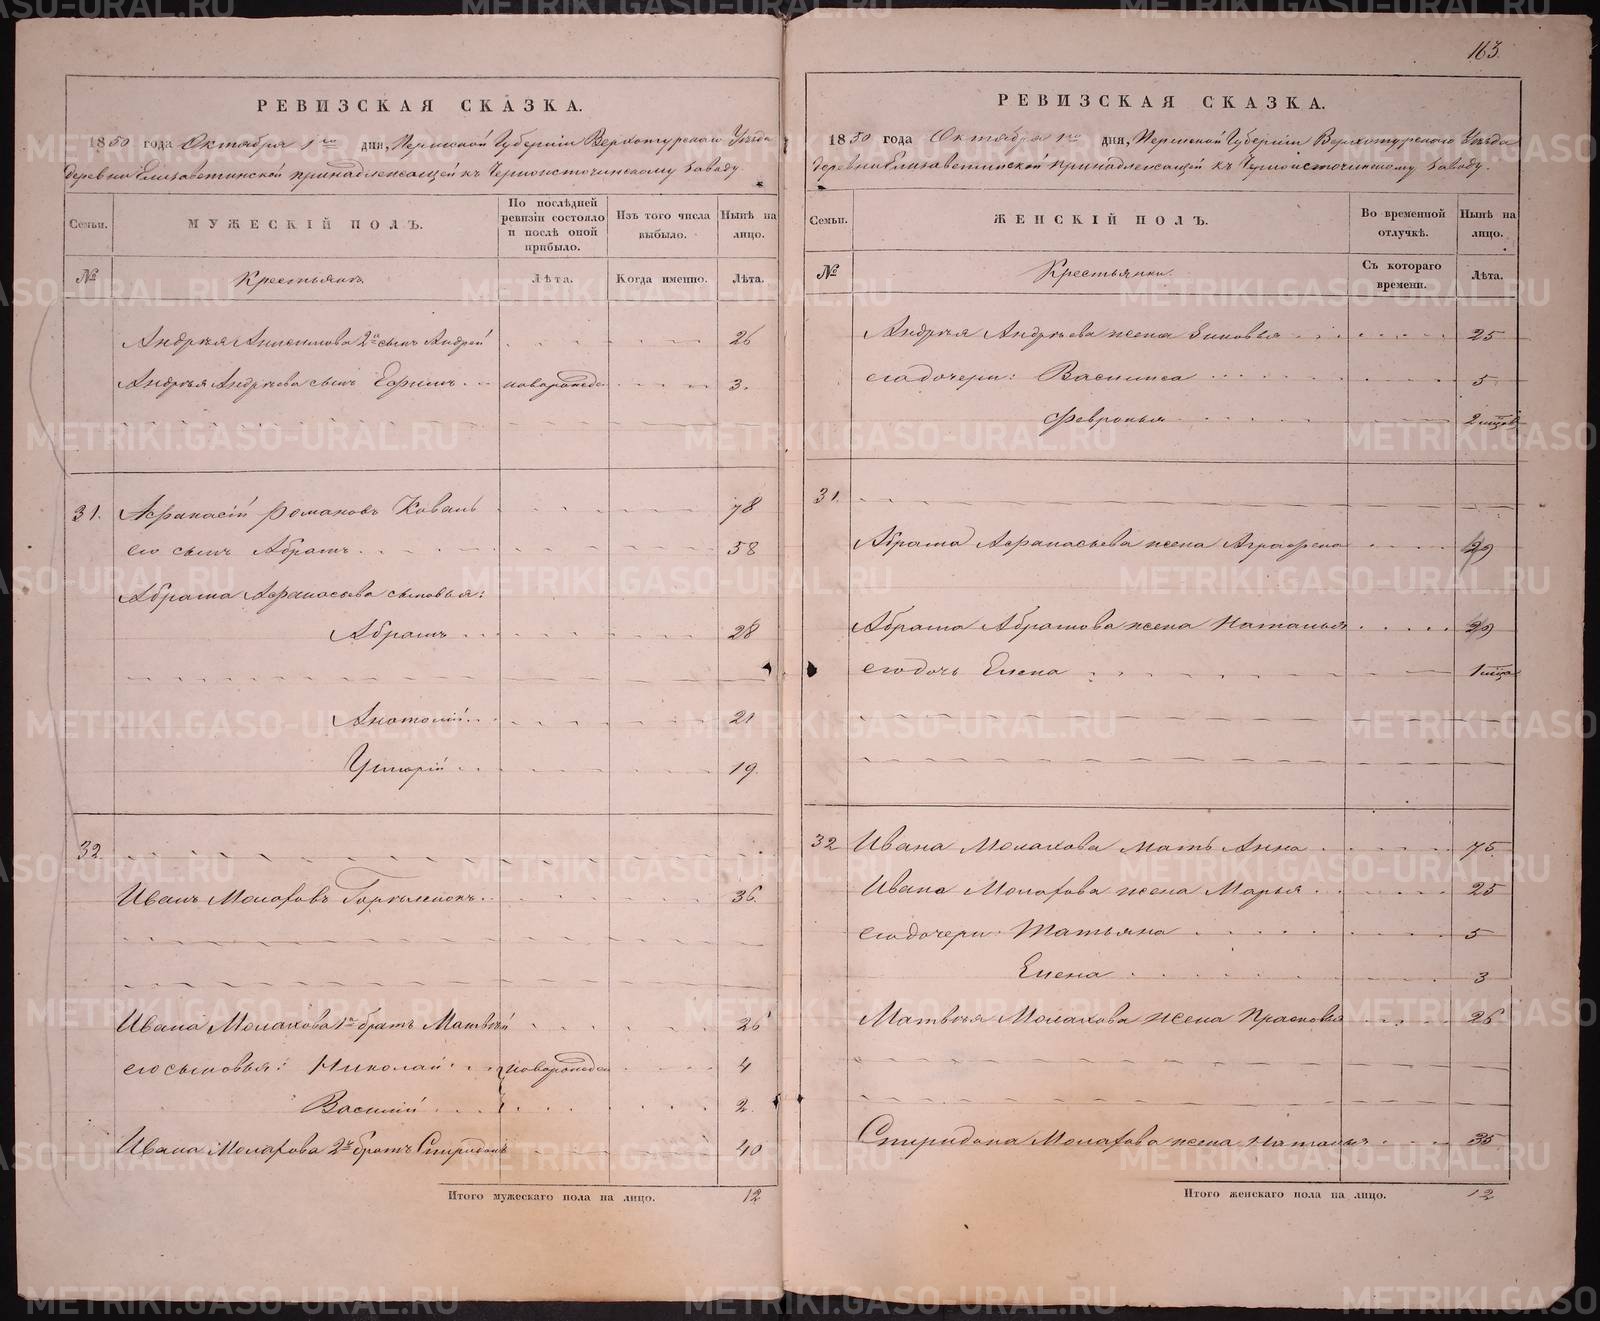 163.
РЕВИЗСКАЯ СКАЗКА.
1850 года Октября 1го дни, Пермской Губерніи Верхотурскаго Уѣзда
деревни Елизаветинской принадлежащей къ Черноисточинскому Заводу.
Семьи.
МУЖЕСКІЙ ПОЛЪ.
По послѣдней ревизіи состояло и послѣ оной прибыло.
Изъ того числа выбыло.
Нынѣ на лицо.
№
Крестьянъ
Лѣта.
Когда именно.
Лѣта.
Андрѣя Анисимова 2й сынъ Андрей 26
Андрѣя Андрѣева сынъ Ефимъ новорожден 3.
31. Афанасій Романовъ 78
его сынъ Абрамъ 58
Абрама Афанасьева сыновья:
Абрамъ 28
Анатолій 21
19.
32.
Иванъ Малаховъ 36.
Ивана Малахова 1й братъ Матвѣй 26
его сыновья: Николай новорожден 4
Василий 2.
Ивана Малахова 2й братъ Спиридонъ 40
Итого мужескаго пола на лицо. 12
РЕВИЗСКАЯ СКАЗКА.
1850 года Октября 1го дни, Пермской Губерніи Верхотурскаго Уѣзда
деревни Елизаветинской принадлежащей къ Черноисточинскому Заводу.
Семьи.
ЖЕНСКІЙ ПОЛЪ.
Во временной отлучкѣ.
Нынѣ на лицо.
№
Крестьянки.
Съ котораго времени.
Лѣта.
Андрѣя Андрѣева жена Зиновья 25
его дочери: Василиса 5
Февронья 2
31.
Абрама Афанасьева жена Аграфена
Абрама Абрамова жена Наталья
его дочь Елена 1
32 Ивана Малахова мать Анна 75.
Ивана Малахова жена Марья 25
его дочери: Татьяна 5
Елена 3
Матвѣя Малахова жена Прасковья 26
Спиридона Малахова жена Наталья 35
Итого женскаго пола на лицо. 12
METRIKI.GASO-URAL.RU